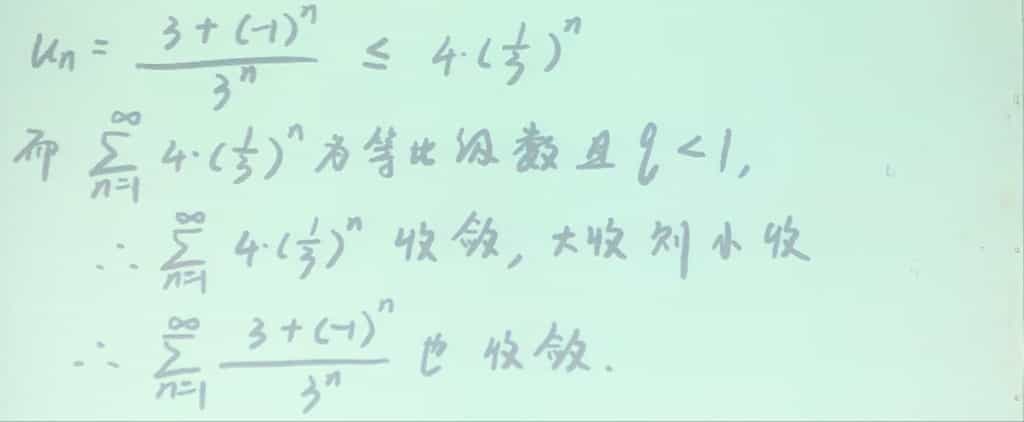 uₙ = (3 + (-1)ⁿ) / 3ⁿ ≤ 4·(1/3)ⁿ
而 ∑_{n=1}^{∞} 4·(1/3)ⁿ 为等比级数且 q < 1,
∴ ∑_{n=1}^{∞} 4·(1/3)ⁿ 收敛, 大收则小收
∴ ∑_{n=1}^{∞} (3 + (-1)ⁿ) / 3ⁿ 也收敛.